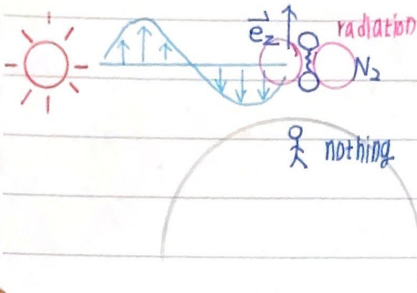 radiation
$\vec{e}_z$
N₂
nothing